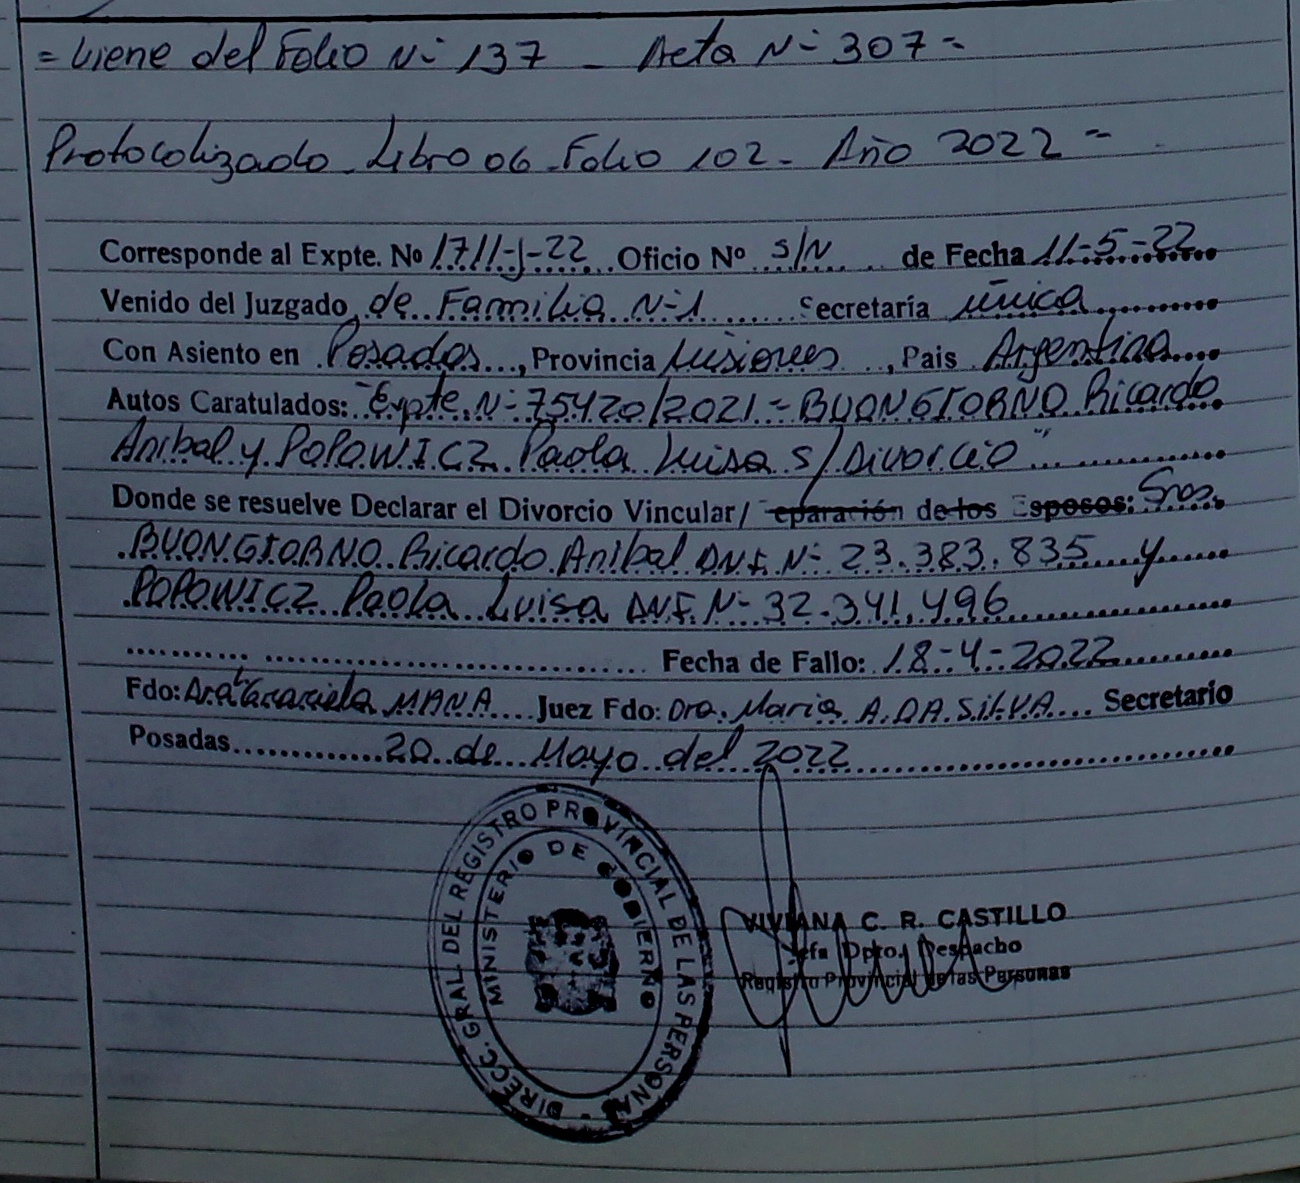 = Viene del Folio Nº 137 - Acta Nº 307 =
Protocolizado - Libro 06 - Folio 102 - Año 2022 =
Corresponde al Expte. No 1711-J-22 Oficio Nº S/N de Fecha 11-5-22
Venido del Juzgado de Familia Nº 1 Secretaría única
Con Asiento en Posadas, Provincia Misiones, Pais Argentina
Autos Caratulados: "Expte. Nº 75420/2021 = BUONGIORNO Ricardo
Anibal y POPOWICZ Paola Luisa s/ Divorcio"
Donde se resuelve Declarar el Divorcio Vincular/ eparación de los Esposos: Sres.
BUONGIORNO Ricardo Anibal D.N.I. Nº 23.383.835 y
POPOWICZ Paola Luisa D.N.I. Nº 32.341.496
Fecha de Fallo: 18-4-2022
Fdo: Dra. Graciela MANA Juez Fdo: Dra. Maria A. DA SILVA Secretario
Posadas 20 de Mayo del 2022
DIRECC. GRAL DEL REGISTRO PROVINCIAL DE LAS PERSONAS
MINISTERIO DE GOBIERNO
VIVIANA C. R. CASTILLO
Jefa Dpto. Despacho
Registro Provincial de las Personas